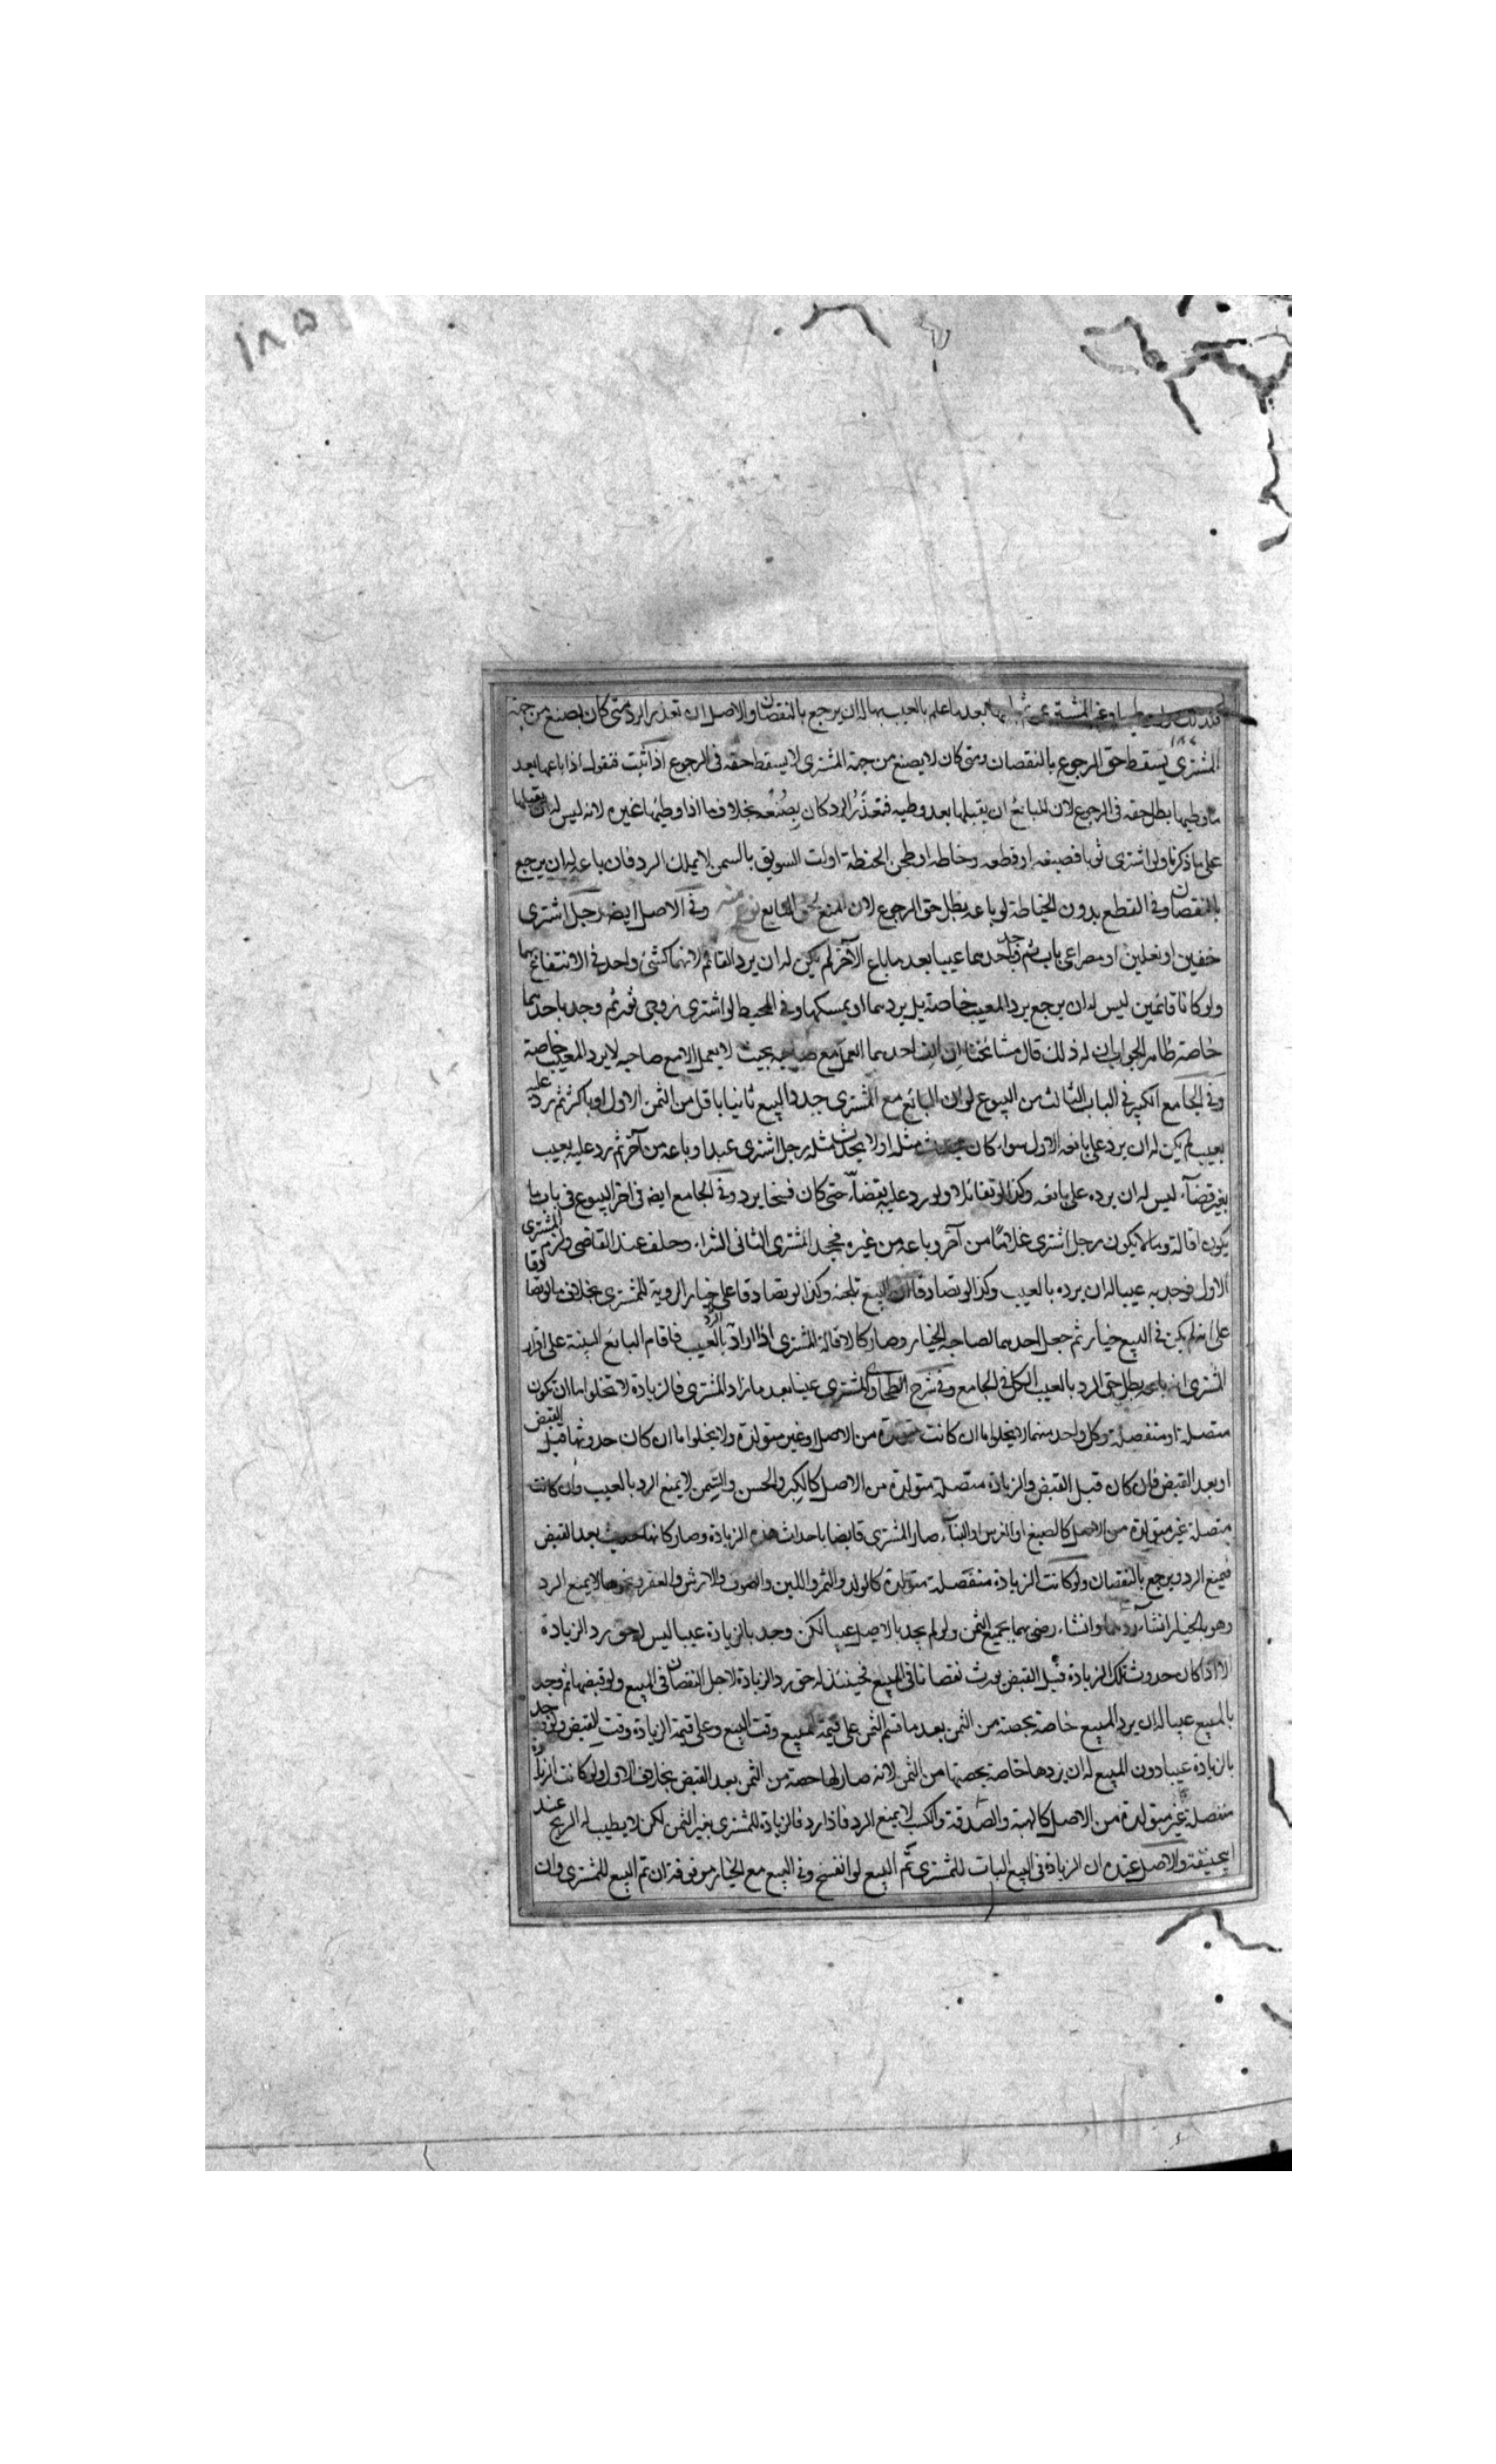 ١٨٥
كذلك ولو وطيها غير المشتري ثم باعها بعد ما علم بالعيب بها له ان يرجع بالنقصان والاصل ان تعذر الرد متى كان بصنع من جهة
المشتري يسقط حق الرجوع بالنقصان ومتى كان لا بصنع من جهة المشتري لا يسقط حقه في الرجوع اذا ثبت فنقول اذا باعها بعد
ما وطيها بطل حقه في الرجوع لان للبائع ان يقبلها بعد وطيه فتعذر الرد كان بصنعه بخلاف ما اذا وطيها غيره لانه ليس له ان يقبلها
على ما ذكرنا ولو اشترى ثوبا فصبغه او قطعه وخاطه او طحن الحنطة اولت السويق بالسمن لا يملك الرد فان باعه له ان يرجع
بالنقصان وفي القطع بدون الخياطة لو باعه بطل حق الرجوع لان المنع لحق البايع وفي الاصل ايضا رجل اشترى
خفين او نعلين او مصراعي باب ثم وجد باحدهما عيبا بعد ما باع الآخر لم يكن له ان يرد القائم لانهما كشئ واحد في الانتفاع بهما
ولو كانا قائمين ليس له ان يرجع برد المعيب خاصة بل يردهما او يمسكهما وفي المحيط لو اشترى زوجي ثور ثم وجد باحدهما
خاصة ظاهر الجواب ان له ذلك قال مشائخنا ان الف احدهما العمل مع صاحبه بحيث لا يعمل الا مع صاحبه لا يرد المعيب خاصة
وفي الجامع الكبير في الباب الثالث من البيوع لو ان البائع مع المشتري جدد البيع ثانيا باقل من الثمن الاول او باكثر ثم رد عليه
بعيب لم يكن له ان يرد على بائعه الاول سواء كان يحدث مثله او لا يحدث مثله رجل اشترى عبدا وباعه من آخر ثم رد عليه بعيب
بغير قضآء ليس له ان يرده على بائعه وكذا لو تقائلا ولو رد عليه بقضآء حتى كان فسخا يرد وفي الجامع ايضا في اخر البيوع في باب ما
يكون اقالة وما لا يكون رجل اشترى غلاما من آخر وباعه من غيره فجحد المشتري الثاني الشراء وحلف عند القاضي ولزم المشتري
الاول فوجد به عيبا له ان يرده بالعيب وكذا لو تصادقا ان البيع تلجئة وكذا لو تصادقا على خيار الروية للمشتري بخلاف ما لو تصادقا
على انه لم يكن في البيع خيار ثم جعل احدهما لصاحبه الخيار وصار كالاقالة المشتري اذا اراد الرد بالعيب فاقام البائع البينة على اقرار
المشتري انه باعه بطل حق الرد بالعيب الكل في الجامع وفي شرح الطحاوي المشتري عينا بعد ما زاد المشتري فالزيادة لا تخلوا اما ان تكون
متصلة او منفصلة وكل واحد منهما لا يخلوا ما ان كانت متولدة من الاصل او غير متولدة ولا يخلوا ما ان كان حدوثها قبل القبض
او بعد القبض فان كان قبل القبض والزيادة متصلة متولدة من الاصل كالكبر والحسن والسمن لا يمنع الرد بالعيب وان كانت
متصلة غير متولدة من الاصل كالصبغ او الغرس او البنآء صار المشتري قابضا باحداث هذه الزيادة وصار كانها حدثت بعد القبض
فيمنع الرد ويرجع بالنقصان ولو كانت الزيادة منفصلة متولدة كالولد والثمر واللبن والصوف والارش والعقر ونحوها لا يمنع الرد
وهو بالخيار ان شآء ردهما وانشاء رضى بهما بجميع الثمن ولو لم يجد بالاصل عيبا لكن وجد بالزيادة عيبا ليس له حق رد الزيادة
الا اذا كان حدوث تلك الزيادة قبل القبض يورث نقصانا في المبيع فحينئذ له حق رد الزيادة لاجل النقصان في المبيع ولو قبضها ثم وجد
بالمبيع عيبا له ان يرد المبيع خاصة بحصته من الثمن بعد ما قسم الثمن على قيمة المبيع وقت البيع وعلى قيمة الزيادة وقت القبض ولو وجد
بالزيادة عيبا دون المبيع له ان يردها خاصة بحصتها من الثمن لانه صار لها حصة من الثمن بعد القبض بخلاف الاول ولو كانت الزيادة
منفصلة غير متولدة من الاصل كالهبة والصدقة والكسب لا يمنع الرد فاذا رد فالزيادة للمشتري بغير الثمن لكن لا يطيب له الربح عند
ابيحنيفة والاصل عنده ان الزيادة في البيع البات للمشتري تم البيع او انفسخ وفي البيع مع الخيار موقوفة ان تم البيع للمشتري وان